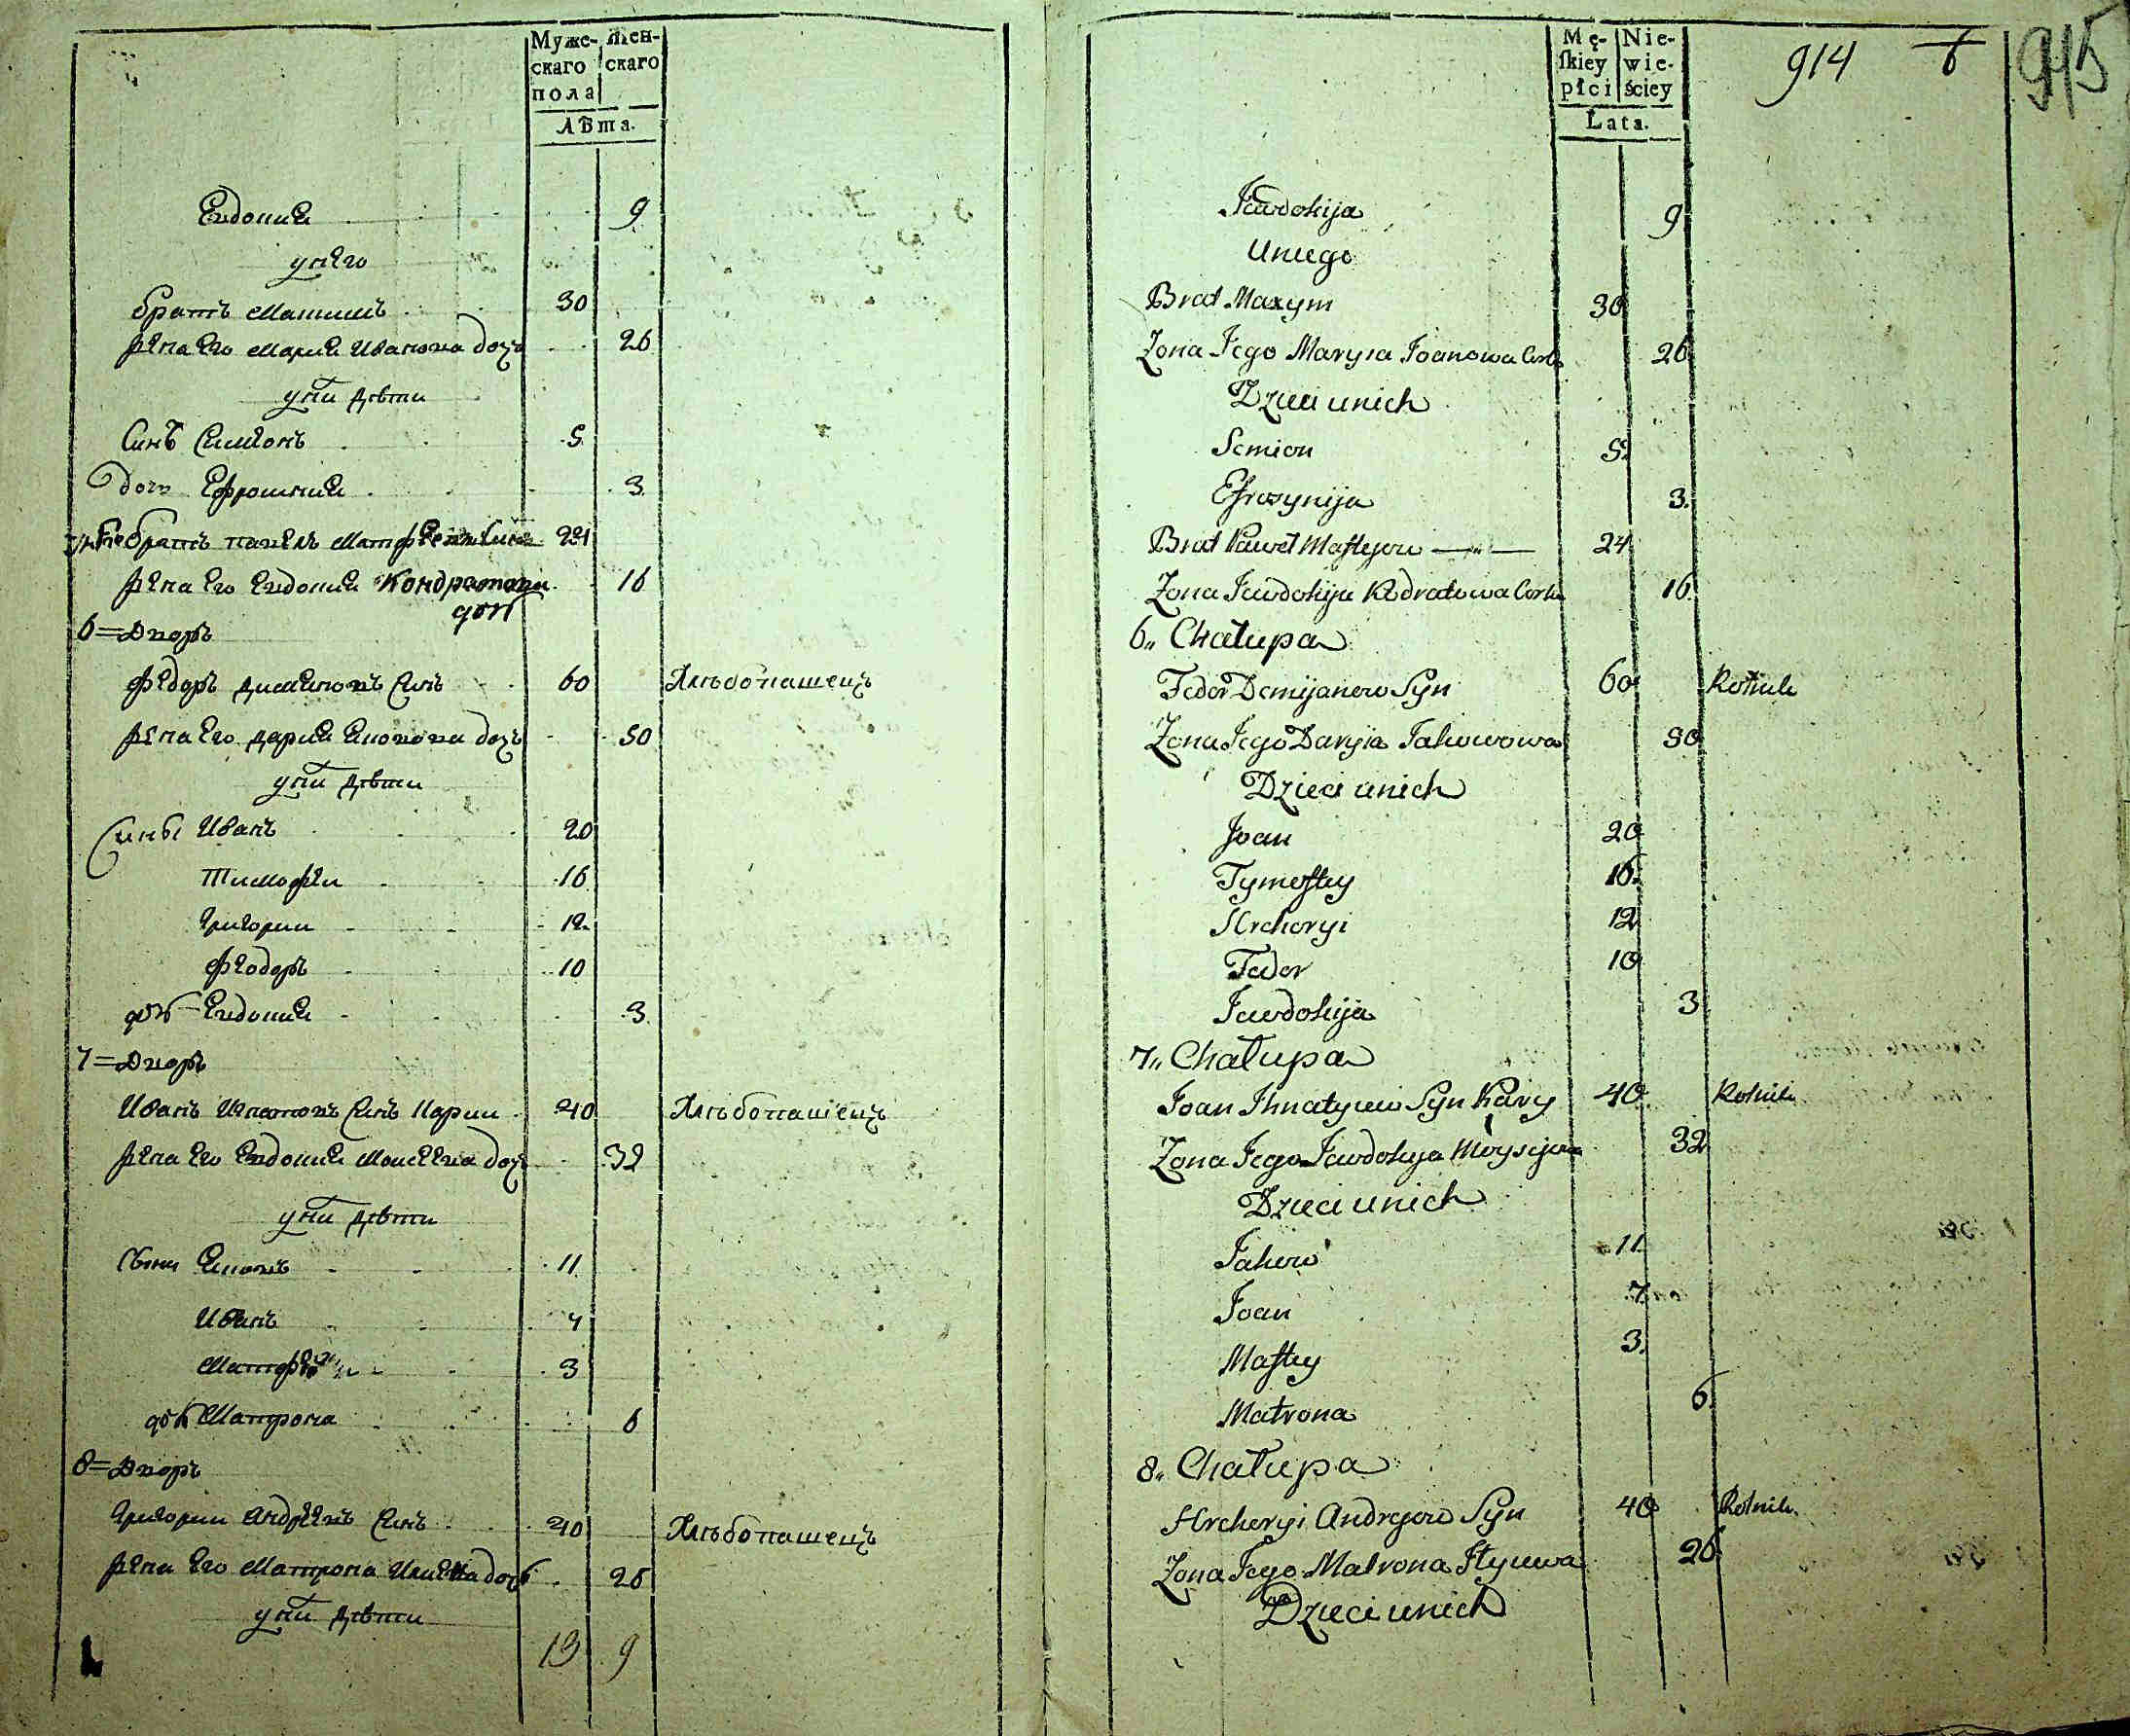 Муже- Жен-
скаго скаго
пола
Лѣта.
Евдокия 9
у него
братъ Максимъ 30
жена Его Мария Иванова дочь 26
у них дѣти
Синъ Симионъ 5
дочь Ефросиния 3
братъ павелъ Матфеевъ Синъ 24
жена Его Евдокия Кондратова 16
дочь
6=Дворъ
Федоръ Димяновъ Синъ 60 Хлѣбопашецъ
жена Его дария Яковова дочь 50
у них дѣти
Сины Иванъ 20
Тимофѣи 16
Григории 12
Феодоръ 10
дочь Евдокия 3
7=Дворъ
Иванъ Игнатовъ Синъ Карии 40 Хлѣбопашецъ
жена Его Евдокия Моисеева дочь 32
у них дѣти
Сыни Яковъ 11
Иванъ 7
Матфѣи 3
дочь Матрона 6
8=Дворъ
Григории Андрѣевъ Синъ 40 Хлѣбопашецъ
жена Его Матрона Илиева дочь 26
у них дѣти
13 9
Mę- Nie-
skiey wie-
płci ściey
Lata.
914 6 915
Jawdokija 9
U niego
Brat Maxym 30
Zona Jego Marysia Joanowa Corka 26
Dzieci u nich
Semion 5
Efrozynija 3
Brat Paweł Maftejow 24
Zona Jawdokija Kodratowa Corka 16
6„ Chałupa
Fedor Demijanow Syn 60 Rolnik
Zona Jego Daryia Jakowowa 50
Dzieci u nich
Joan 20
Tymoftey 16
Hrehoryi 12
Fedor 10
Jawdokija 3
7„ Chałupa
Joan Ihnatyiew Syn Kary 40 Rolnik
Zona Jego Jawdokija Moysijwa 32
Dzieci u nich
Jakow 11
Joan 7
Maftey 3
Matrona 6
8„ Chałupa
Hrehoryi Andrejow Syn 40 Rolnik
Zona Jego Matrona Ilyiewa 26
Dzieci u nich